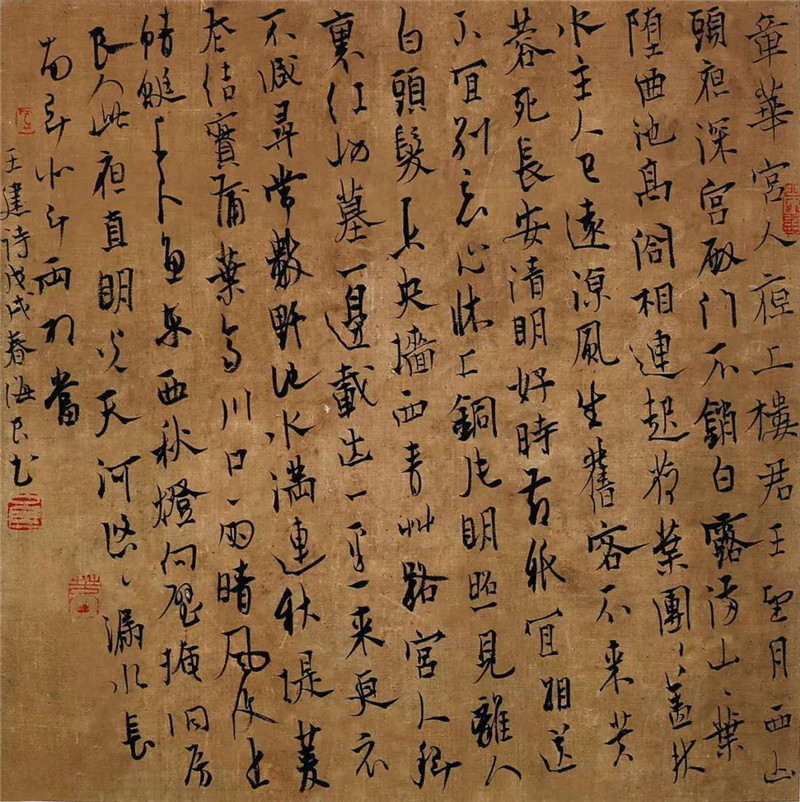 章華宮人夜上樓君王望月西山
頭夜深宮殿門不銷白露滿山山葉
墮曲池高閣相連起荷葉團團蓋秋
水主人已遠涼風生舊客不來芙
蓉死長安清明好時節衹宜相送
不宜別惡心床上銅片明照見離人
白頭髮未央墻西青草路宮人斜
裏紅妝墓一邊載出一邊來更衣
不減尋常數野池水滿連秋堤菱
花結實蒲葉齊川口雨晴風復止
蜻蜓上下魚東西秋燈向壁掩洞房
良人此夜直明光天河悠悠漏水長
南斗北斗兩相當
王建詩戊戌春海良書